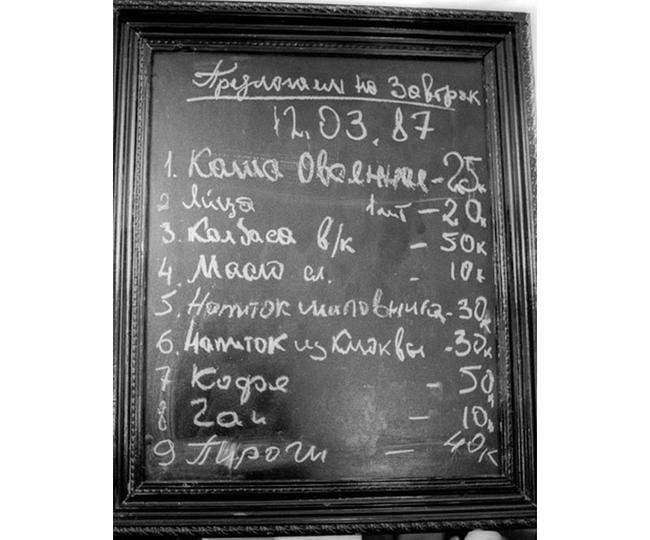 Предлагаем на Завтрак
12.03.87
1. Каша Овсянная - 25к
2 Яйца 1шт - 20к
3. Колбаса в/к - 50к
4. Масло сл. - 10к
5. Напиток шиповника - 30к
6. Напиток из Клюквы - 30к
7 Кофе - 50к
8 Чай - 10к
9 Пироги - 40к